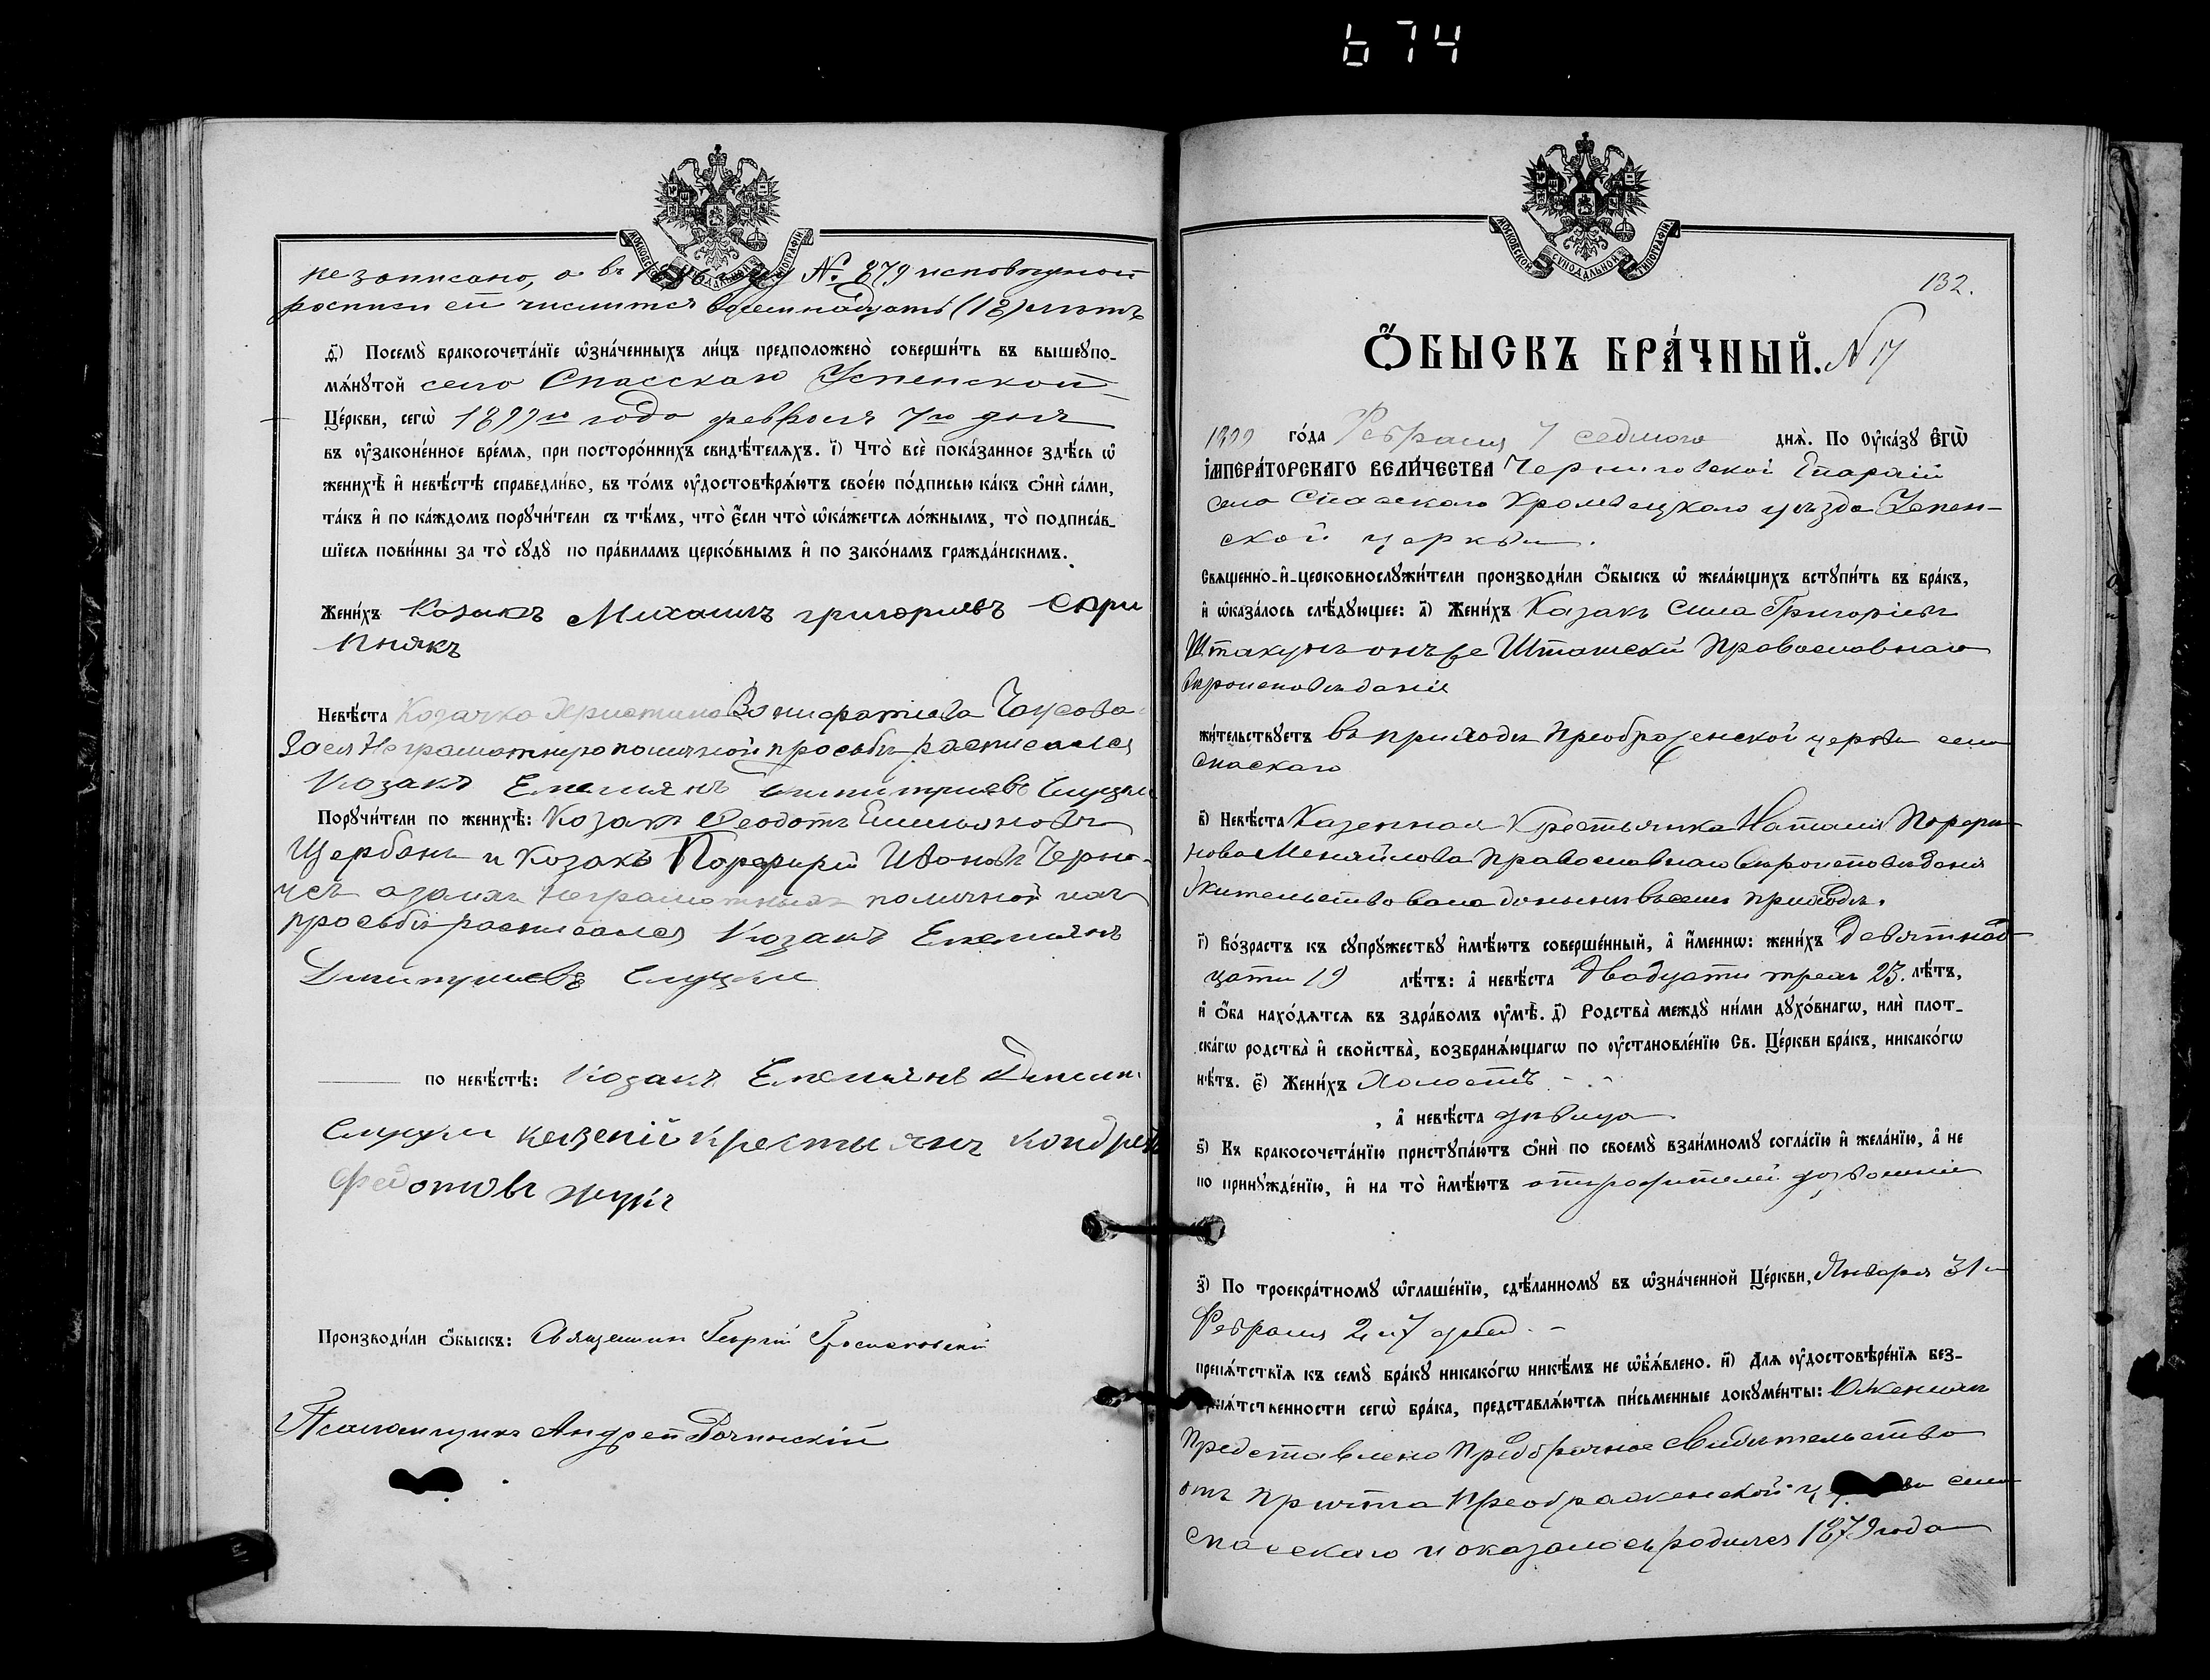 674
МОСКОВСКОЙ СѴНОДАЛЬНОЙ ТИПОГРАФІИ
не записано, а въ 1896 году № 879 исповѣдной
росписи ей числится восемнадцать (18) лѣтъ
ѳ҃) Посемꙋ̀ бракосочета́нїе ѡ҆зна́ченныхъ ли́цъ предположено̀ соверши́ть въ вышеꙋпо-
мѧ́нꙋтой село Спасскаго Успенской
Це́ркви, сегѡ̀ 1899го года февраля 7го дня
въ ᲂу҆законе́нное вре́мѧ, при посторо́ннихъ свидѣ́телѧхъ. і҃) Что̀ всѐ пока́занное здѣ́сь ѡ҆
женихѣ̀ и҆ невѣ́стѣ справедли́во, въ то́мъ ᲂу҆достовѣрѧ́ютъ свое́ю по́дписью ка́къ ѻ҆нѝ са́ми,
та́къ и҆ по ка́ждомъ порꙋчи́тели съ тѣ́мъ, что̀ є҆́сли что̀ ѡ҆ка́жетсѧ ло́жнымъ, то̀ подписа́в-
шїесѧ пови́нны за то̀ сꙋдꙋ̀ по пра́виламъ церко́внымъ и҆ по зако́намъ гражда́нскимъ.
Жени́хъ Козакъ Михаилъ григориевъ Скри
пнякъ
Невѣ́ста Козачка Христина Вонифатиева Чаусова
За ея Неграмотную по личной просьбѣ расписался
Козакъ Емелиянъ Дмитриевъ
Порꙋчи́тели по женихѣ̀: Козакъ Феодотъ Емельяновъ
Щербань и Козакъ Порфирій Ивановъ
а за нихъ Неграмотныхъ по личной ихъ
просьбѣ расписался Козакъ Емелиянъ
Дмитриевъ
по невѣ́стѣ: Козакъ Емелиянъ
крестьянъ
Федотовъ
Производи́ли ѻ҆́быскъ: Священникъ Георгій
Псаломщикъ Андрей
МОСКОВСКОЙ СѴНОДАЛЬНОЙ ТИПОГРАФІИ
132.
Ѻ҆́БЫСКЪ БРА́ЧНЫЙ. N 17
1899 го́да Февраля 7 седмого днѧ̀. По ᲂу҆ка́зꙋ Є҆гѡ̀
І҆мпера́торскагѡ вели́чества Черниговской Епархіи
села Спаского Кролевецкаго уѣзда Успен-
ской церкви.
Свѧще́нно-и҆-церковнослꙋжи́тели производи́ли ѻ҆́быскъ ѡ҆ жела́ющихъ встꙋпи́ть въ бра́къ,
и҆ ѡ҆каза́лось слѣ́дꙋющее: а҃) Жени́хъ Казакъ Сила Григоріевъ
Штакунъ онъ же Православнаго
вѣроисповѣданія
жи́тельствꙋетъ въ приходѣ Преображенской церкви села
Спаскаго
в҃) Невѣ́ста Казенная Крестьянка Наталия Порфири
нова Меняйлова Православнаго вѣроисповѣданія
Жительствовала донынѣ въ семъ приходѣ.
г҃) Во́зрастъ къ сꙋпрꙋ́жествꙋ и҆мѣ́ютъ соверше́нный, а҆ и҆́меннѡ: жени́хъ Девятнад
цати 19 лѣ́тъ: а҆ невѣ́ста Двадцати трехъ 23. лѣ́тъ,
и҆ ѻ҆́ба нахо́дѧтсѧ въ здра́вомъ ᲂу҆мѣ̀. д҃) Родства̀ междꙋ̀ ни́ми дꙋхо́внагѡ, илѝ плот-
ска́гѡ родства̀ и҆ свойства̀, возбранѧ́ющагѡ по ᲂу҆становле́нїю Св. Це́ркви бра́къ, никако́гѡ
нѣ́тъ. є҃) Жени́хъ Холостъ
, а҆ невѣ́ста дѣвица
ѕ҃) Къ бракосочета́нїю пристꙋпа́ютъ ѻ҆нѝ по своемꙋ̀ взаи́мномꙋ согла́сїю и҆ жела́нїю, а҆ не
по принꙋжде́нїю, и҆ на то̀ и҆мѣ́ютъ отъ родителей дозволеніе
з҃) По троекра́тномꙋ ѡ҆глаше́нїю, сдѣ́ланномꙋ въ ѡ҆зна́ченной Це́ркви, Января 31 и
Февраля 2 и 7 дней
препѧ́тствїѧ къ семꙋ̀ бра́кꙋ никако́гѡ никѣ́мъ не ѡ҆б̾ѧ́влено. и҃) Длѧ ᲂу҆достовѣре́нїѧ без-
препѧ́тственности сегѡ̀ бра́ка, представлѧ́ютсѧ пи́сьменные докꙋме́нты: Женихъ
Представлено Предбрачное свидѣтельство
отъ причта Преображенской церкви села
Спасскаго и оказалось родился 1879 года